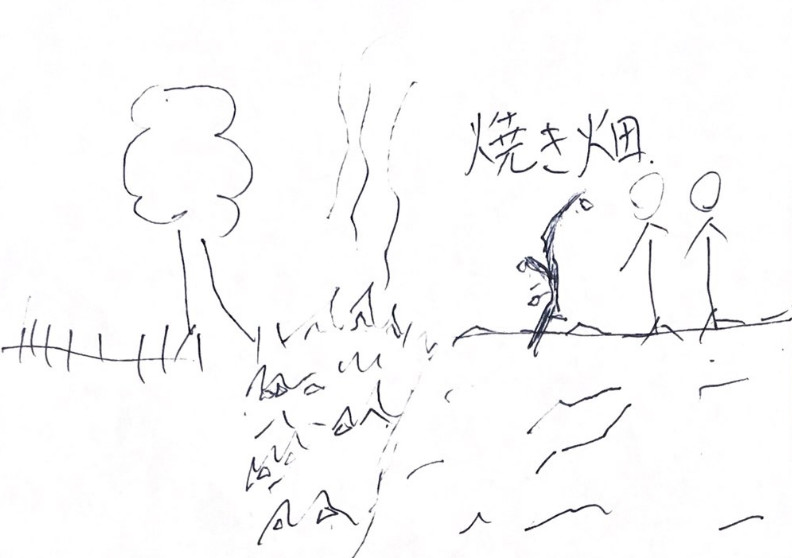 焼き畑.